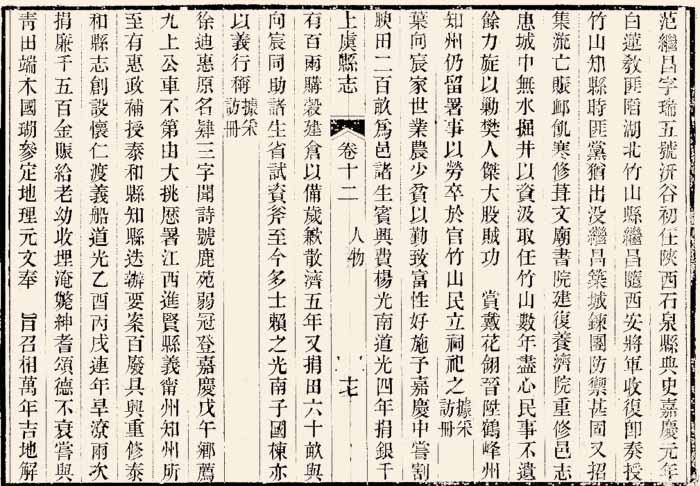 范繼昌字瑞五號汧谷初任陝西石泉縣典史嘉慶元年
白蓮敎匪陷湖北竹山縣繼昌隨西安將軍收復卽奏授
竹山知縣時匪黨猶出没繼昌築城鍊團防禦甚固又招
集流亡賑䘏飢寒修葺文廟書院建復養濟院重修邑志
惠城中無水掘井以資汲取任竹山數年盡心民事不遺
餘力旋以勦樊人傑大股賊功 賞戴花翎晉陞鶴峰州
知州仍留署事以勞卒於官竹山民立祠祀之據采訪冊
葉向宸家世業農少貧以勤致富性好施予嘉慶中嘗割
腴田二百畝爲邑諸生賓興費楊光南道光四年捐銀千
上虞縣志 卷十二 人物 七
有百兩購穀建倉以備歲歉散濟五年又捐田六十畝與
向宸同助諸生省試資斧至今多士賴之光南子國棟亦
以義行稱據采訪冊
徐迪惠原名肄三字聞詩號鹿苑弱冠登嘉慶戊午鄉薦
九上公車不第由大挑歷署江西進賢縣義甯州知州所
至有惠政補授泰和縣知縣迭辦要案百廢具興重修泰
和縣志創設懷仁渡義船道光乙酉丙戌連年旱潦兩次
捐廉千五百金賑給老幼收埋淹斃紳耆頌德不衰嘗與
靑田端木國瑚參定地理元文奉 旨召相萬年吉地解